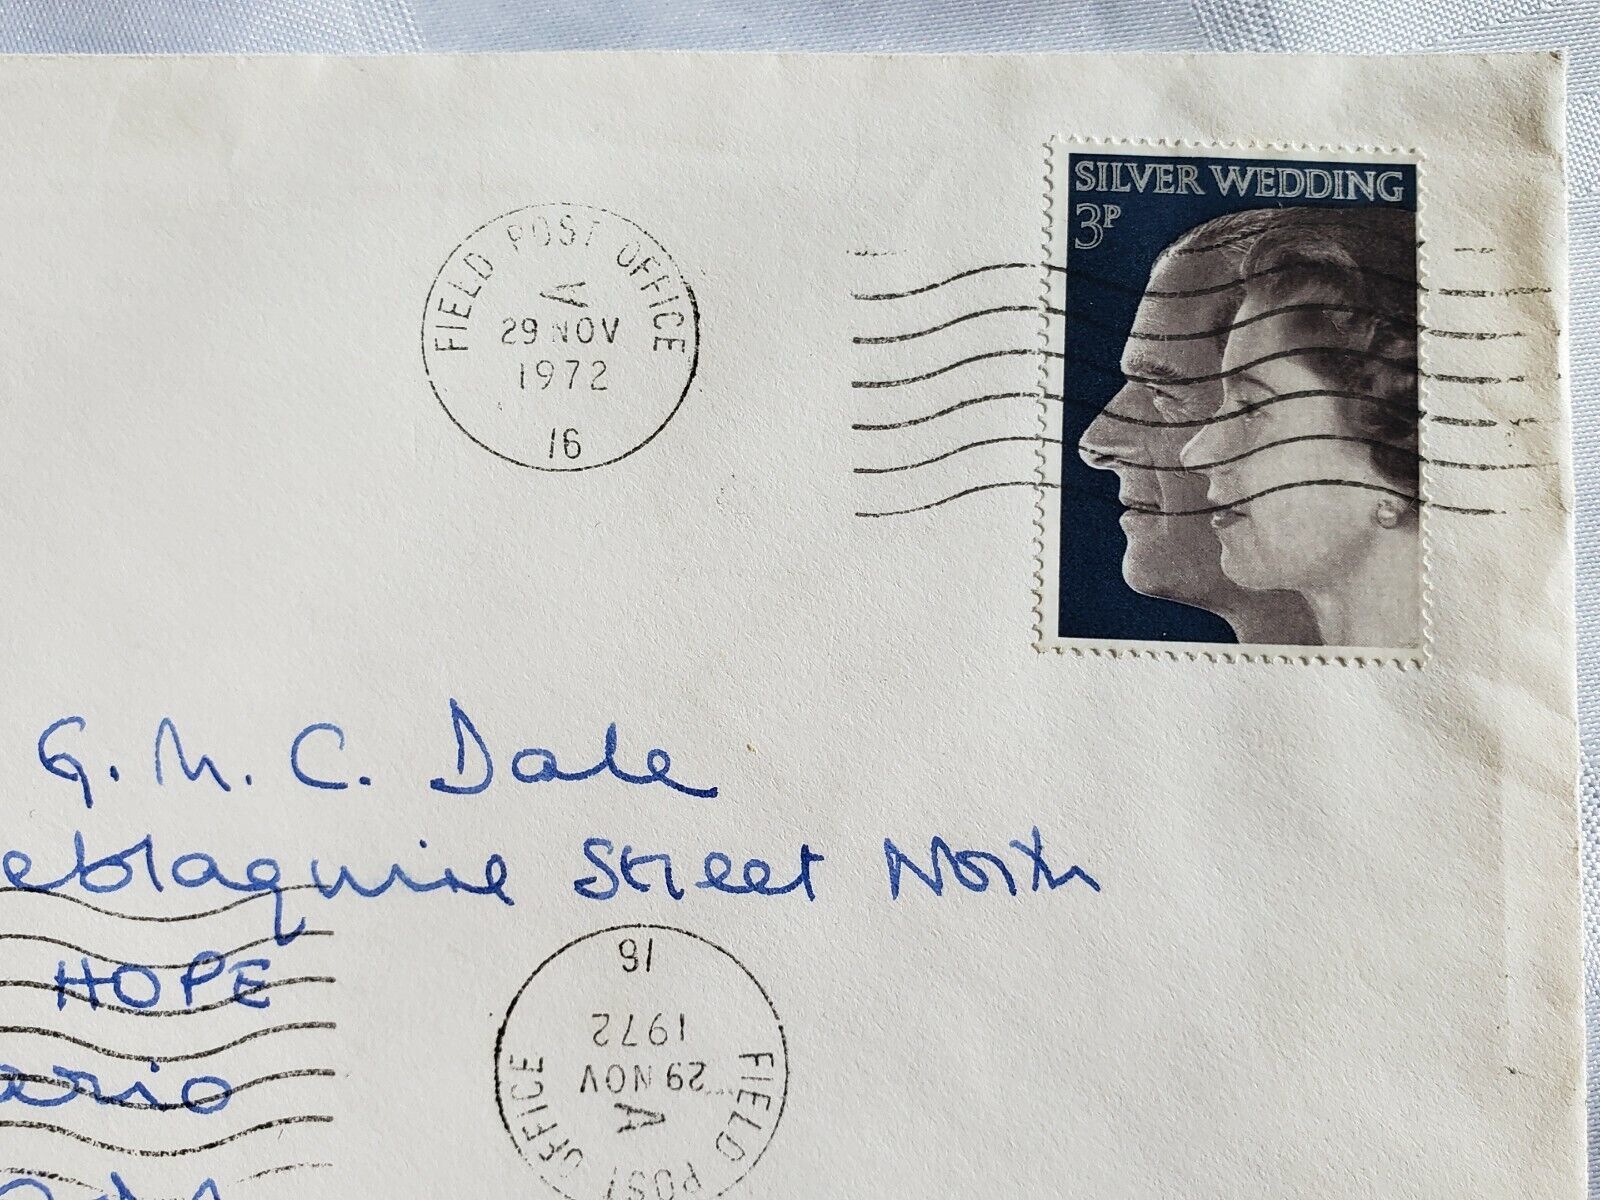 SILVER WEDDING
3P
FIELD POST OFFICE
A
29 NOV
1972
16
G. M. C. Dale
eblaquire Street North
HOPE
ario
16
1972
29 NOV
A
FIELD POST OFFICE